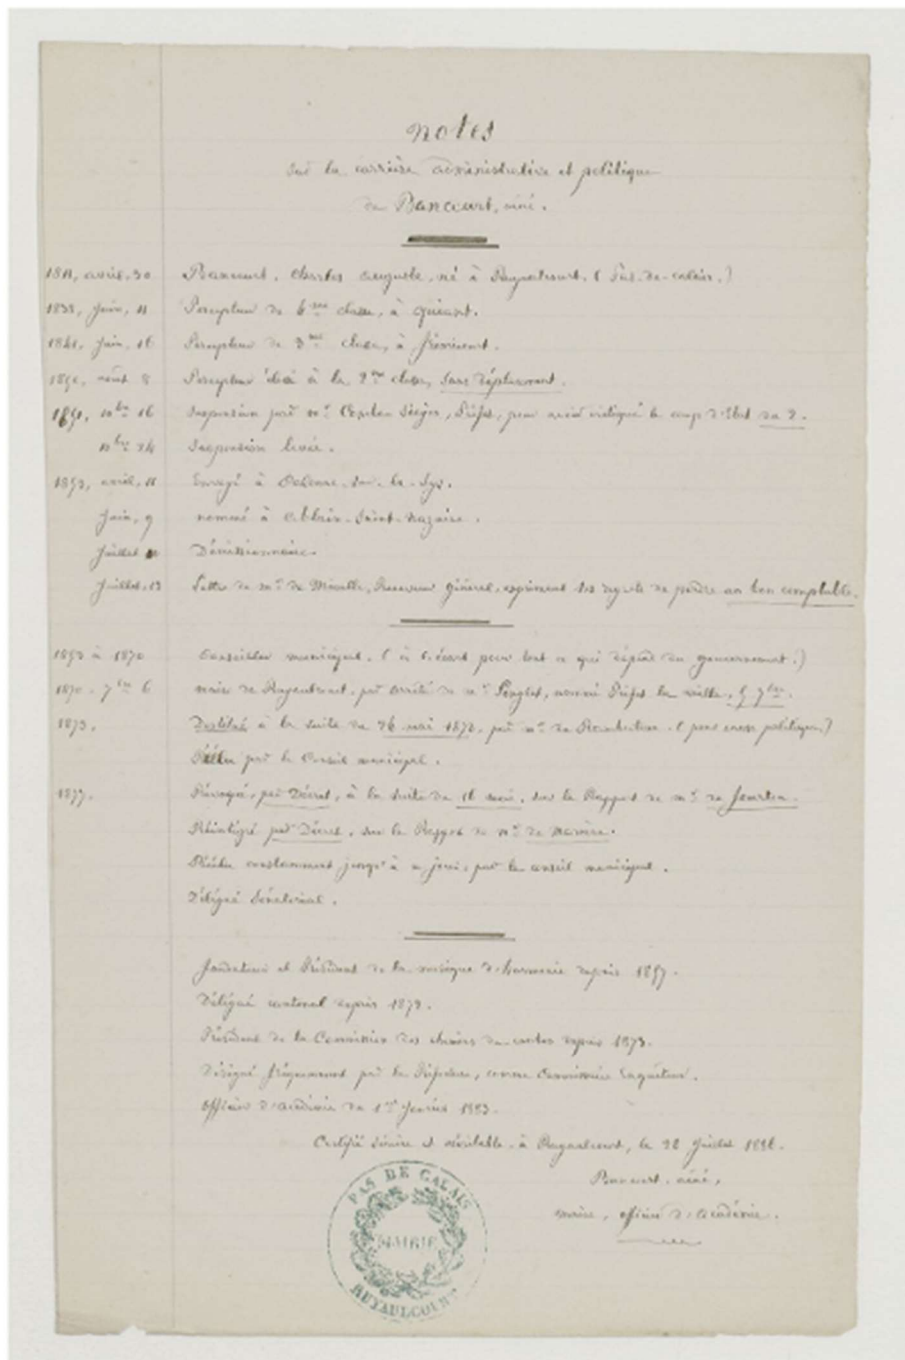 Notes
sur la carrière administrative et politique
de Bancourt, aîné.
1811, avril, 30 Bancourt, Charles Auguste, né à Ruyaulcourt. (Pas-de-Calais.)
1838, juin, 11 Percepteur de 4me classe, à Quéant.
1841, juin, 16 Percepteur de 3me classe, à Frémicourt.
1850, août 8 Percepteur élevé à la 2me classe, sans déplacement.
1851, Xbre 16 Suspension par Mr Préfet, pour avoir critiqué le coup d'État du 2.
Xbre 24 Suspension levée.
1853, avril, 11 Envoyé à sur-la-Lys.
Juin, 9 nommé à Ablain-Saint-Nazaire.
Juillet Démissionnaire.
Juillet, 13 Lettre de Mr de Receveur général, exprimant ses regrets de perdre un bon comptable.
1853 à 1870 Conseiller municipal. ( à l'écart pour tout ce qui dépend du gouvernement.)
1870. 7bre 6 maire de Ruyaulcourt, par arrêté de Mr nommé Préfet la veille, 5 7bre.
1873. Destitué à la suite du mai 1873, par Mr de (pour cause politique.)
Réélu par le Conseil municipal.
1877. Révoqué, par Décret, à la suite du 16 mai, sur le Rapport de Mr de Fourtou.
Réintégré par Décret, sur le Rapport de Mr de Marcère.
Réélu constamment jusqu'à ce jour, par le conseil municipal.
Délégué Sénatorial.
Fondateur et Président de la musique d'harmonie depuis 1857.
Délégué cantonal depuis 1879.
Président de la Commission des chemins du canton depuis 1873.
Désigné fréquemment par la Préfecture, comme Commissaire Enquêteur.
Officier d'académie du 1er Janvier 1883.
Certifié sincère et véritable à Ruyaulcourt, le 22 Juillet 1886.
Bancourt, aîné,
maire, officier d'académie.
PAS DE CALAIS
MAIRIE
RUYAULCOURT